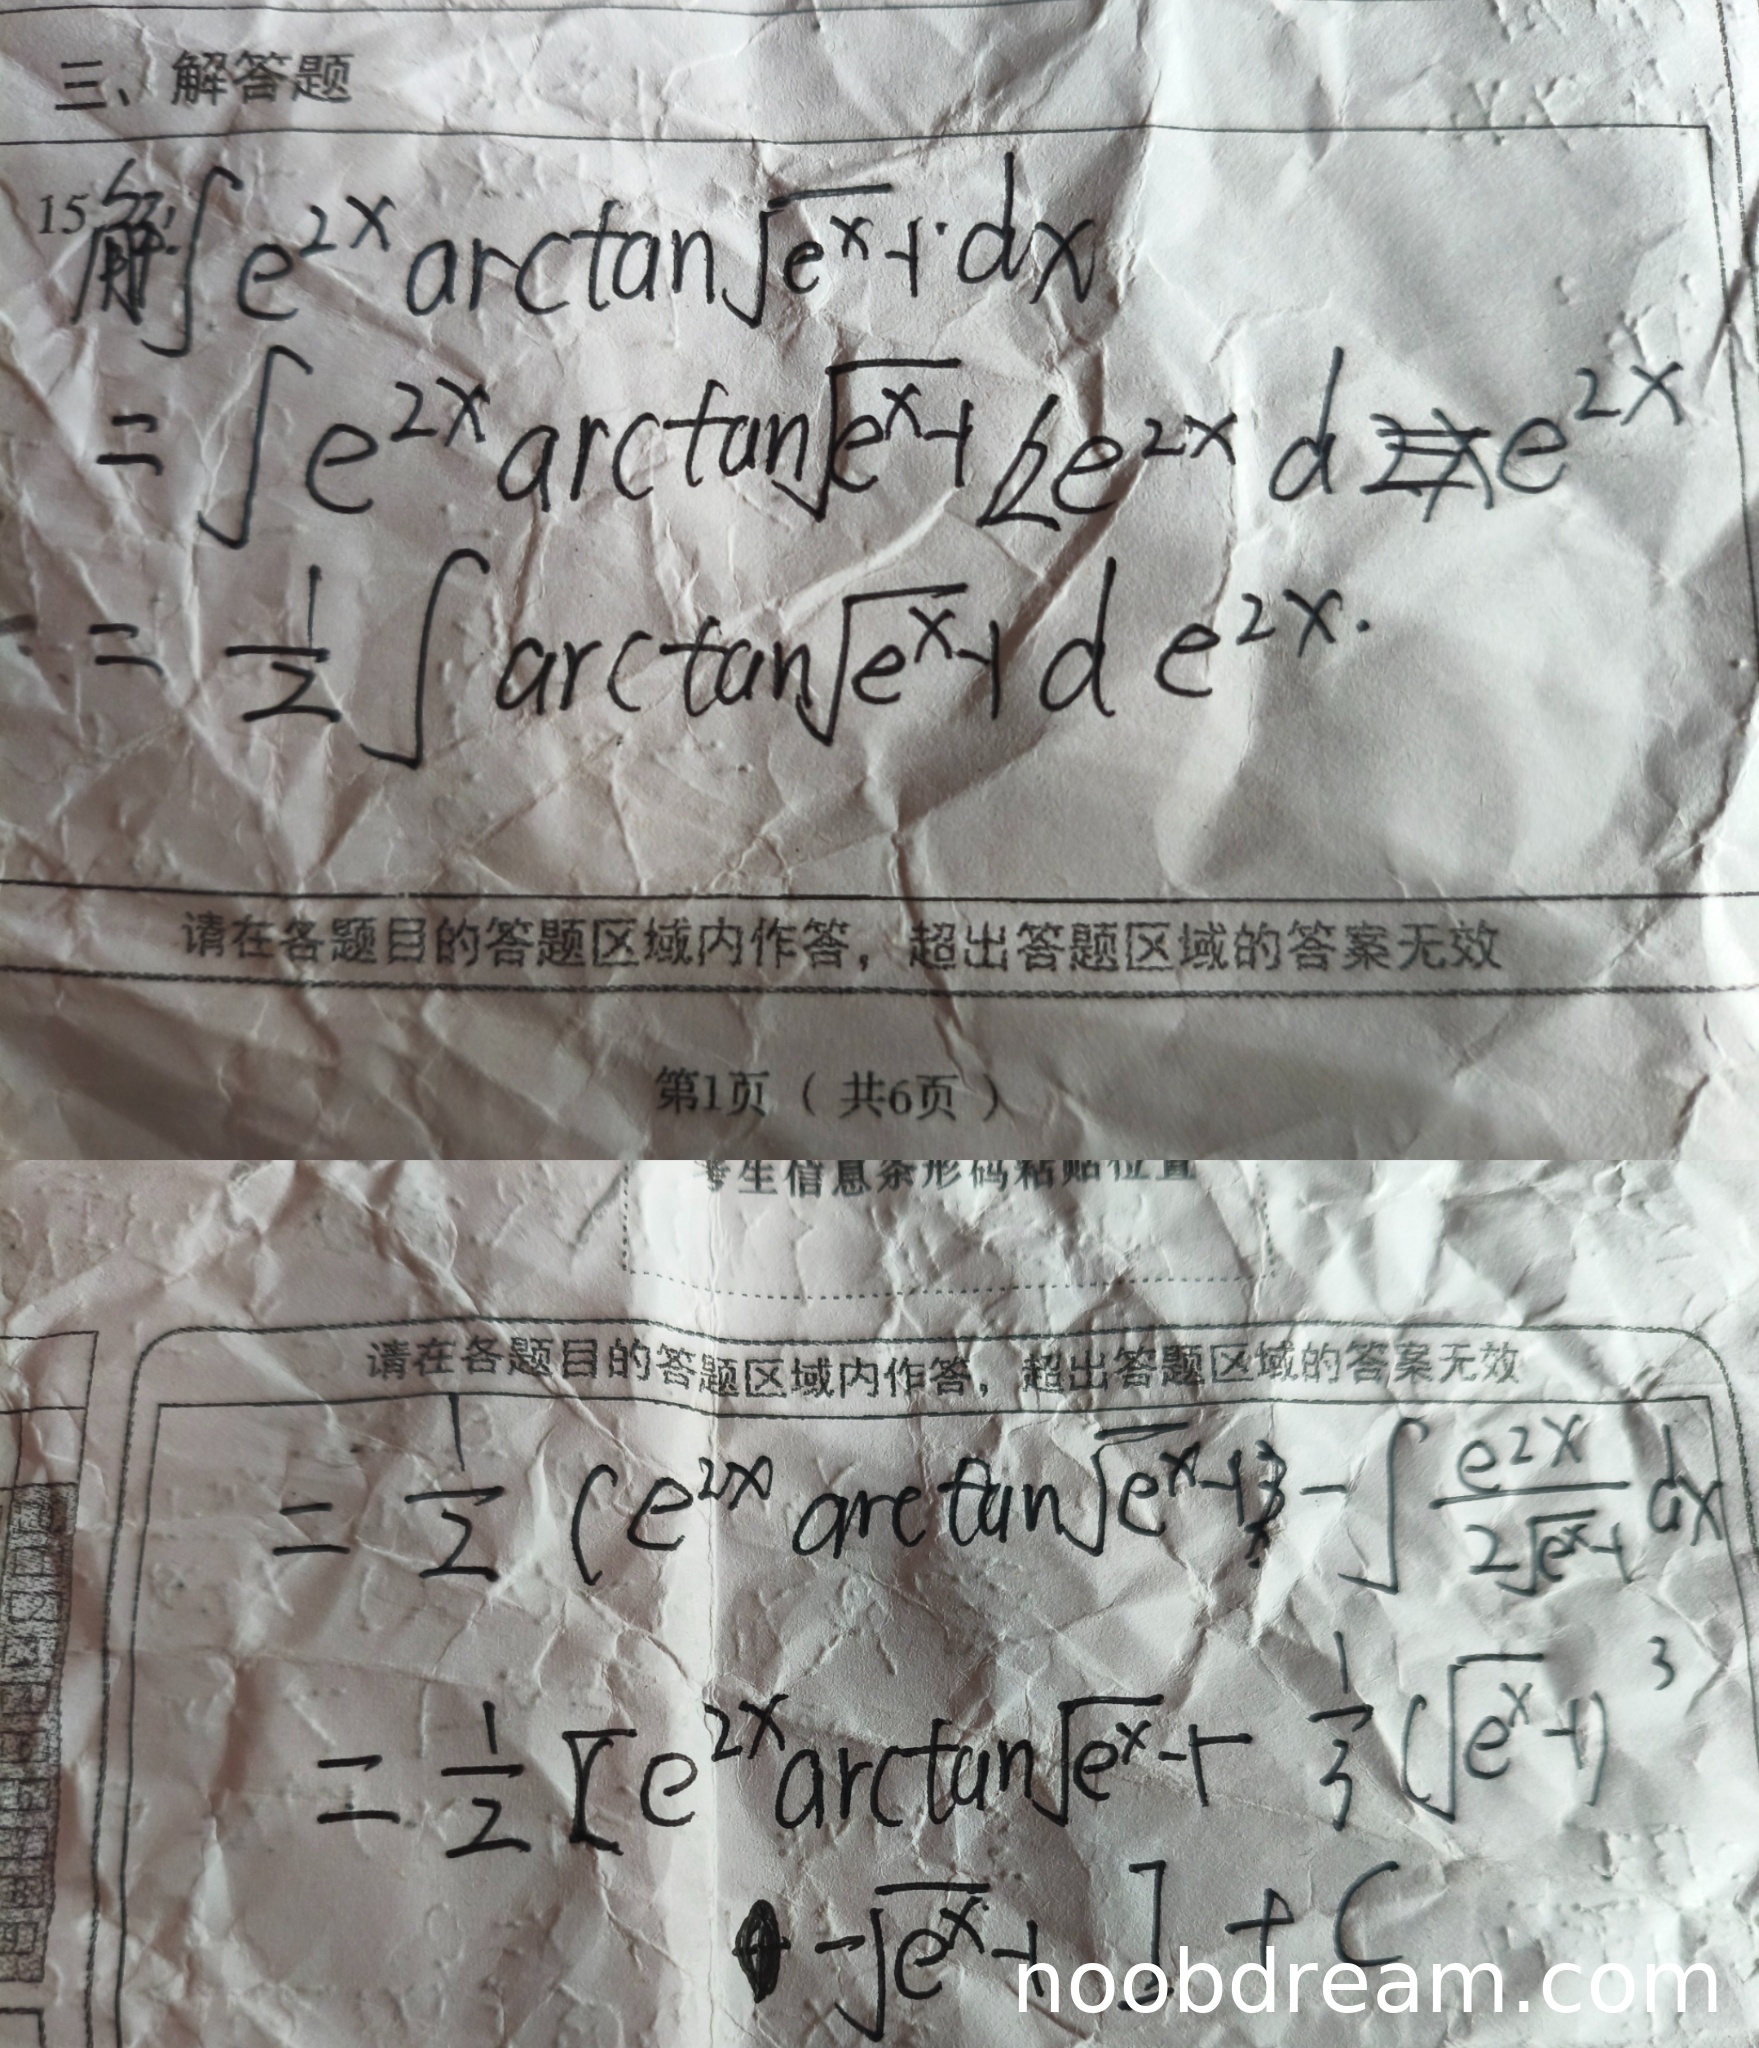 三、解答题
15 解: ∫ e^{2x} arctan√(e^x-1) · dx
= ∫ e^{2x} arctan√(e^x-1) / 2e^{2x} d e^{2x}
= 1/2 ∫ arctan√(e^x-1) d e^{2x}.
请在各题目的答题区域内作答，超出答题区域的答案无效
第1页（共6页）
考生信息条形码粘贴位置
请在各题目的答题区域内作答，超出答题区域的答案无效
= 1/2 (e^{2x} arctan√(e^x-1) - ∫ e^{2x}/(2√(e^x-1)) dx
= 1/2 [e^{2x} arctan√(e^x-1) - 1/3 (√(e^x-1))^3
-√(e^x-1) ] + C
noobdream.com